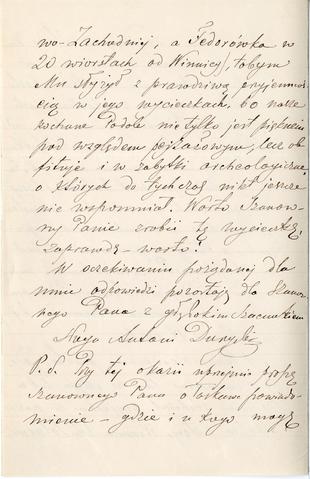 wo-Zachodniej, a Fedorówka w
20 wiorstach od Winnicy), tobym
Mu służył z prawdziwą przyjemno-
ścią w jego wycieczkach, bo nasze
kochane Podole nie tylko jest pięknem
pod względem pejzażowym, lecz ob-
fituje i w zabytki archeologiczne,
o których do tychczas nikt jeszcze
nie wspomniał. Warto Szanow-
ny Panie zrobić tę wycieczkę,
zaprawdę – warto!
W oczekiwaniu pożądanej dla
mnie odpowiedzi pozostaję dla Szanow-
nego Pana z głębokim szacunkiem
Antoni
P.S. Przy tej okazii uprzejmie proszę
Szanownego Pana o łaskawe powiado-
mienie – gdzie i u kogo mogę